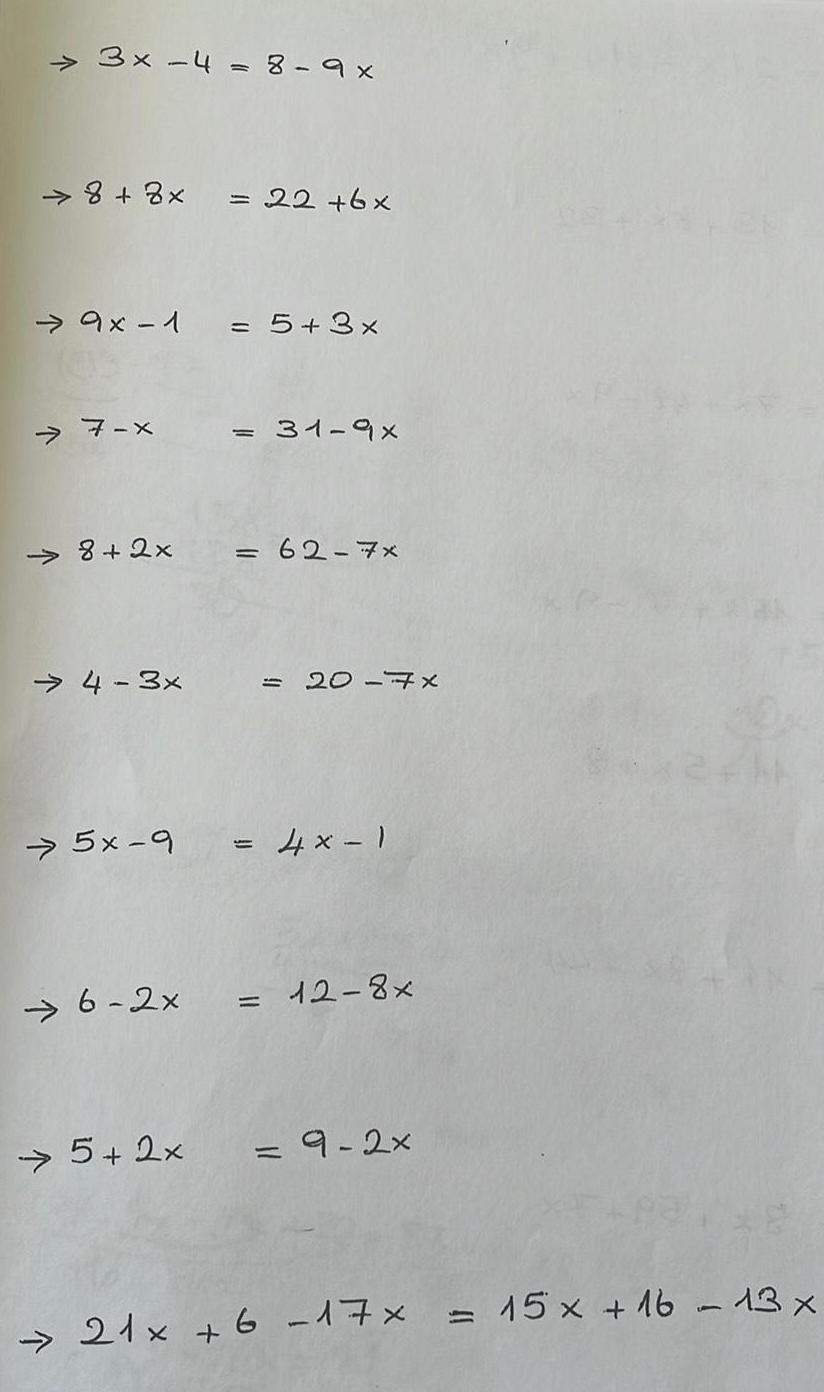 → 3x - 4 = 8 - 9x
→ 8 + 8x = 22 + 6x
→ 9x - 1 = 5 + 3x
→ 7 - x = 31 - 9x
→ 8 + 2x = 62 - 7x
→ 4 - 3x = 20 - 7x
→ 5x - 9 = 4x - 1
→ 6 - 2x = 12 - 8x
→ 5 + 2x = 9 - 2x
→ 21x + 6 - 17x = 15x + 16 - 13x